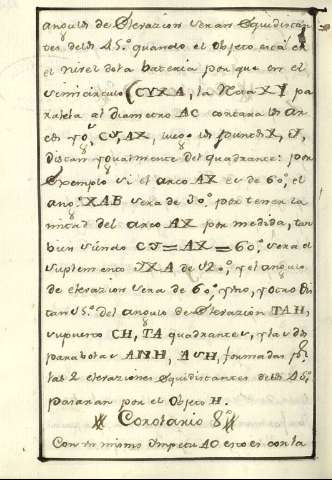 angulos de Elevazion seran Equidistan
tes delos 45.º quando el objeto está en
el nivel dela bateria por que en el
semicirculo CYXA, la Recta XY pa
ralela al diametro AC cortara los ar
cos CY, AX, luego los puntos X, Y,
distan igualmente del quadrante: por
Exemplo si el arco AX es de 60.º, el
ang.º XAB sera de 30.º por tener la
mitad del arco AX por medida, tan
bien siendo CY = AX = 60.º sera el
suplemento YXA de 120.º, y el angulo
de elevazion sera de 60.º, y uno, y otro dis
tan 15.º del angulo de Elevazion TAH,
supuesto CH, TA quadrantes, y las dos
parabolas ANH, ASH, formadas p.r
las 2 elevaziones Equidistantes delos 45.º
pasaran por el Objeto H.
Corolario 8.º
Con un mismo Impetu AO esto es con la